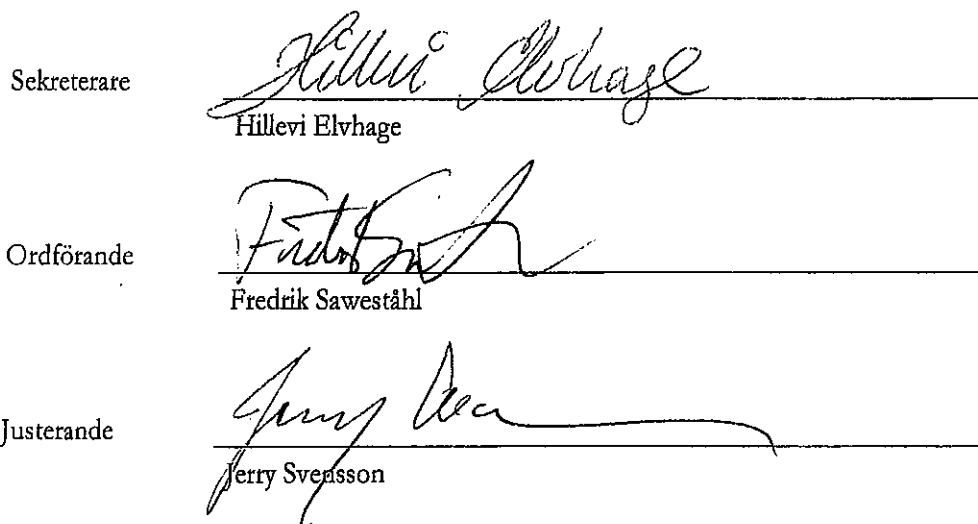 Sekreterare Hillevi Elvhage
Hillevi Elvhage
Ordförande
Fredrik Sawestähl
Justerande Jerry
Jerry Svensson